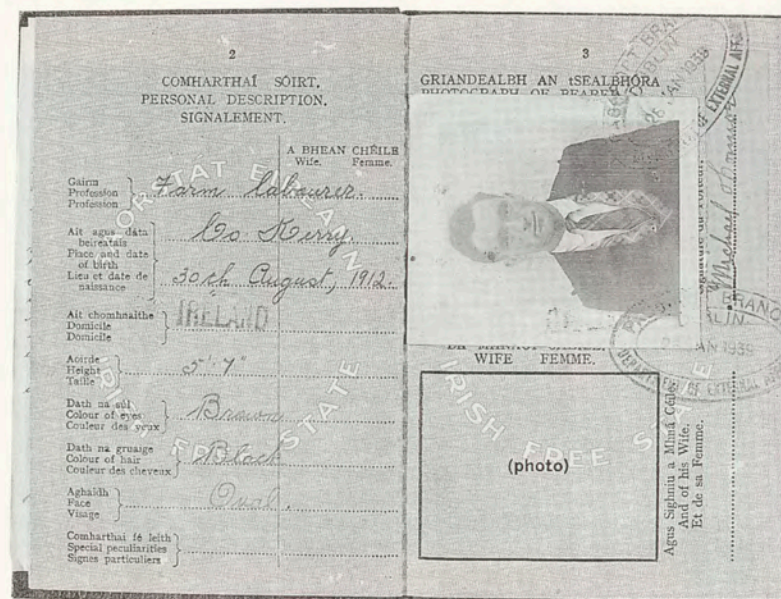 2
COMHARTHAÍ SÓIRT.
PERSONAL DESCRIPTION.
SIGNALEMENT.
A BHEAN CHÉILE
Wife. Femme.
Gairm
Profession
Profession
Farm labourer.
Áit agus dáta
beireatais
Place and date
of birth
Lieu et date de
naissance
Co Kerry.
30th August, 1912.
Áit chomhnaithe
Domicile
Domicile
IRELAND
Aoirde
Height
Taille
5' 7"
Dath na súl
Colour of eyes
Couleur des yeux
Brown
Dath na gruaige
Colour of hair
Couleur des cheveux
Black
Aghaidh
Face
Visage
Oval.
Comharthaí fé leith
Special peculiarities
Signes particuliers
IRISH FREE STATE
3
GRIANDEALBH AN tSEALBHÓRA
PHOTOGRAPH OF BEARER
WIFE FEMME.
(photo)
IRISH FREE STATE
du Porteur.
Michael
Agus Sighniú a Mhná Céile
And of his Wife.
Et de sa Femme.
JAN 1939
OF EXTERNAL
BRANCH
JAN 1939
DEPARTMENT OF EXTERNAL